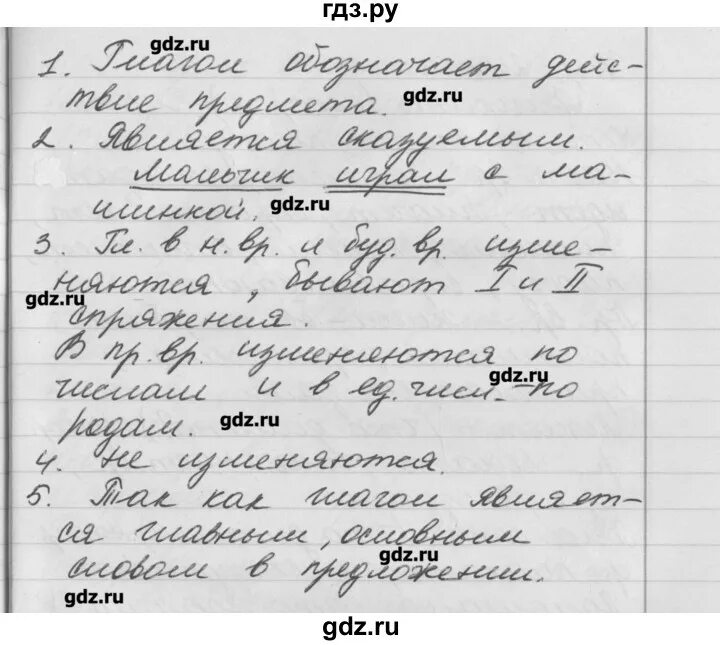 гдз.ру
gdz.ru
1. Глагол обозначает дейс-
твие предмета. gdz.ru
2. Является сказуемым.
Мальчик играл с ма-
шинкой. gdz.ru
3. Гл. в н. вр. и буд. вр. изме-
няются, бывают I и II
gdz.ru
спряжения.
В пр. вр. изменяются по
gdz.ru
числам и в ед. числ. - по
родам. gdz.ru
4. не изменяются.
5. Так как глагол являет-
ся главным, основным
gdz.ru
словом в предложении.
gdz.ru
gdz.ru